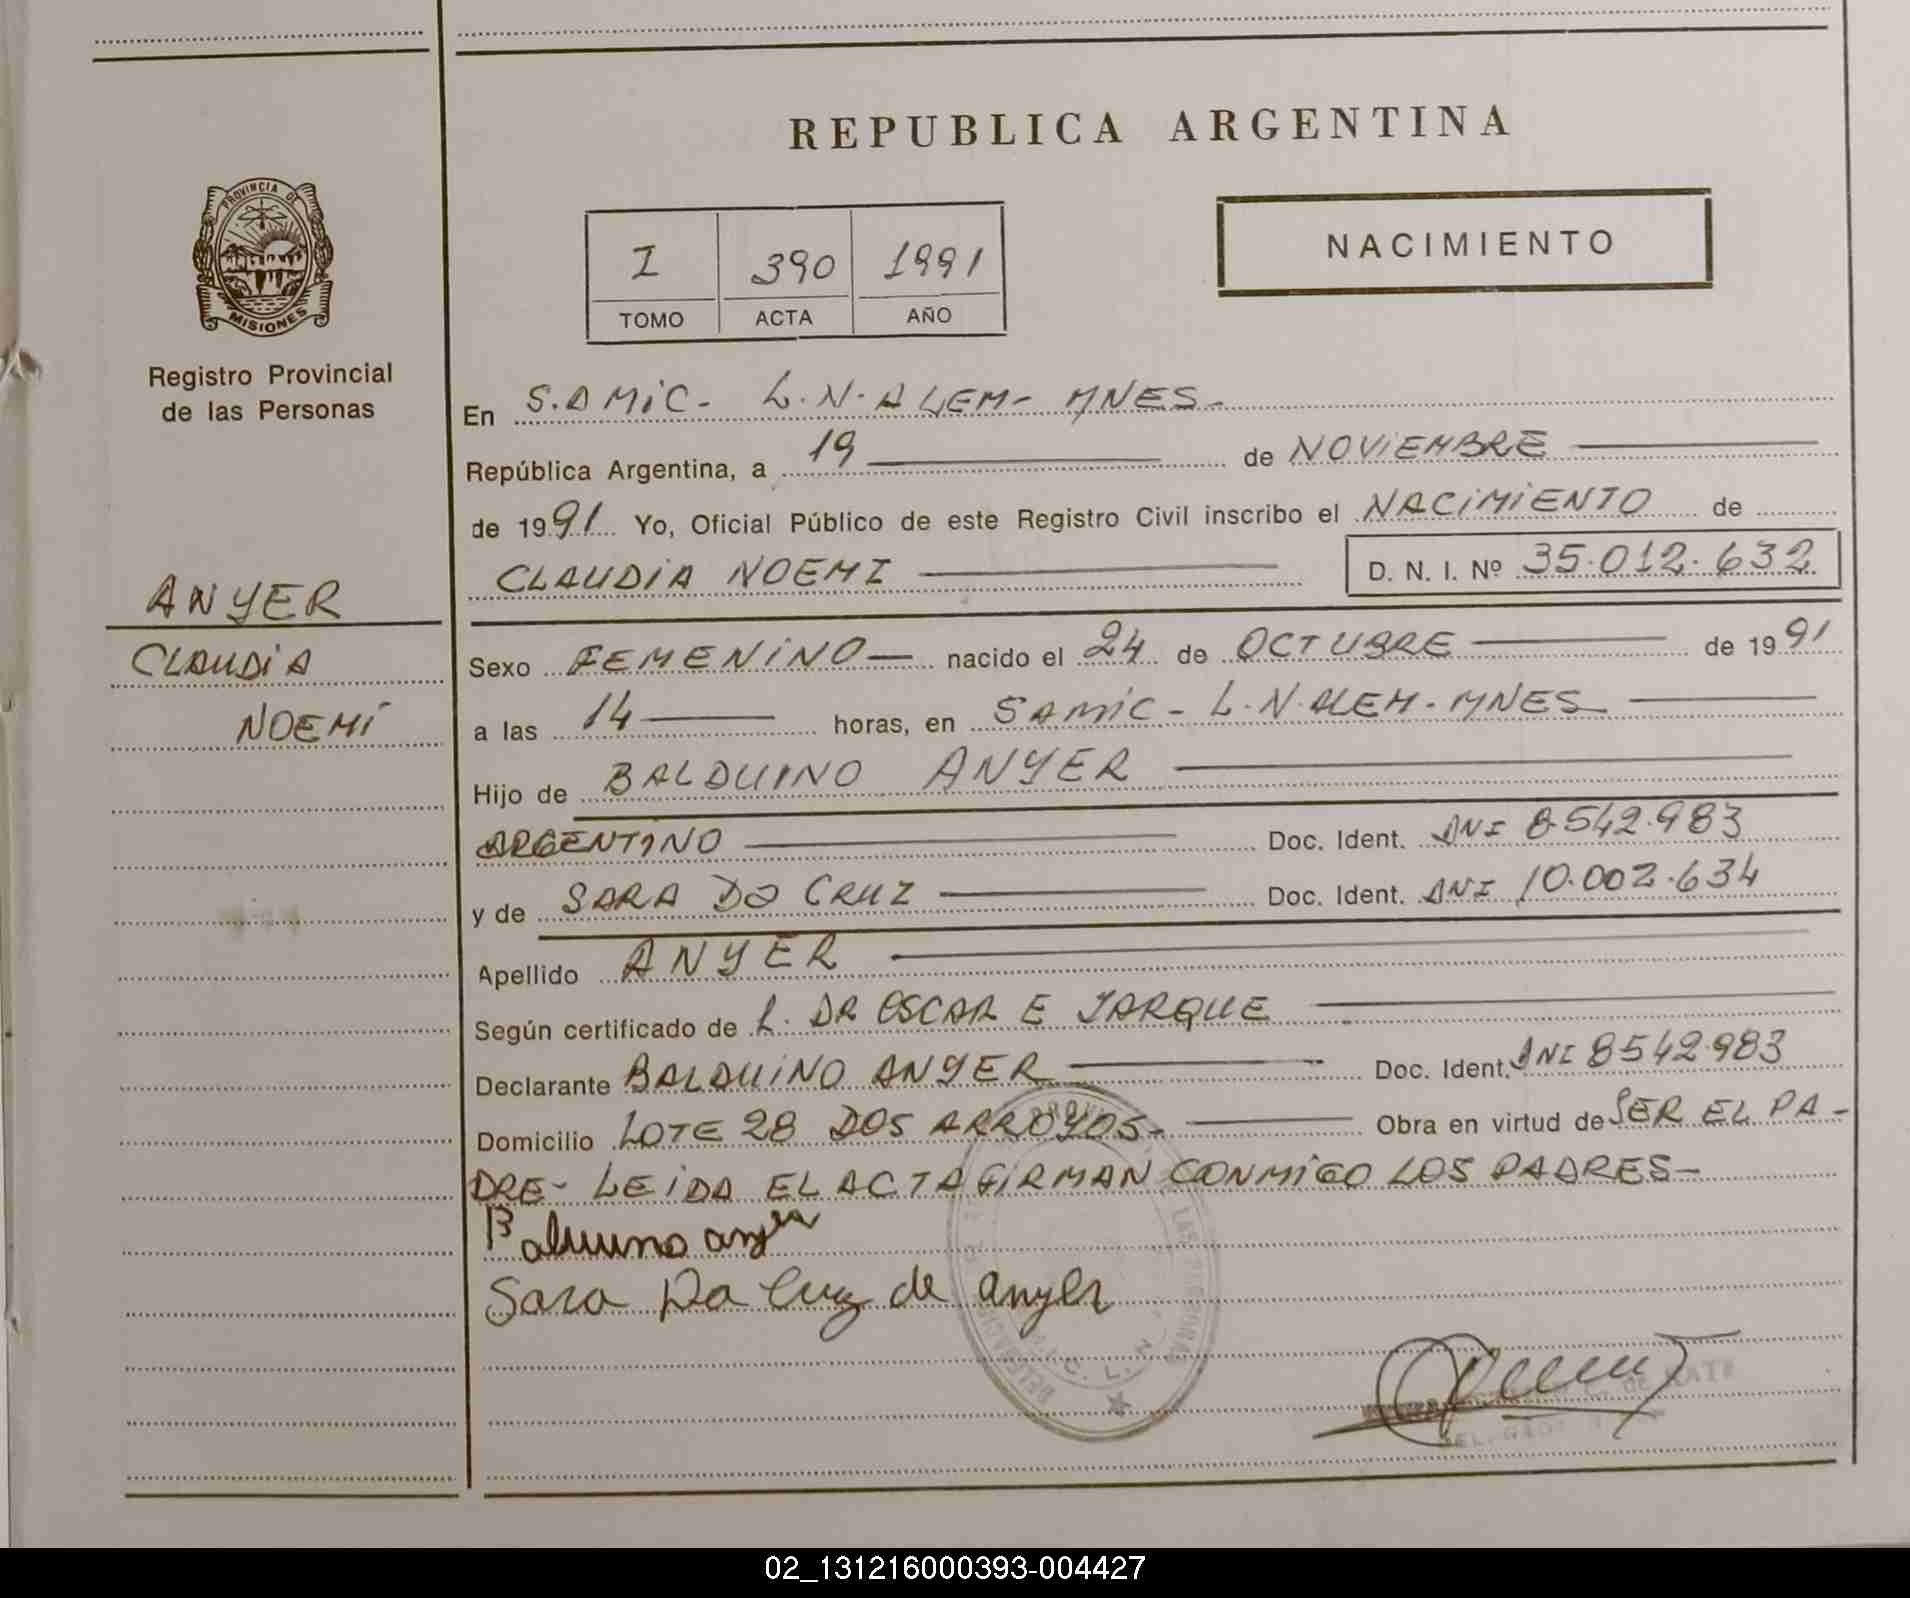 REPUBLICA ARGENTINA
PROVINCIA DE
MISIONES
Registro Provincial
de las Personas
I 390 1991
TOMO ACTA AÑO
NACIMIENTO
En S.AMIC- L.N.ALEM- MNES-
República Argentina, a 19 de NOVIEMBRE
de 1991 Yo, Oficial Público de este Registro Civil inscribo el NACIMIENTO de
CLAUDIA NOEMI D. N. I. Nº 35.012.632
ANYER
CLAUDIA
NOEMÍ
Sexo FEMENINO nacido el 24 de OCTUBRE de 1991
a las 14 horas, en SAMIC - L.N.ALEM. MNES
Hijo de BALDUINO ANYER
ARGENTINO Doc. Ident. DNI 8.542.983
y de SARA DA CRUZ Doc. Ident. DNI 10.002.634
Apellido ANYER
Según certificado de L. DR OSCAR E JARQUE
Declarante BALDUINO ANYER Doc. Ident. DNI 8542.983
Domicilio LOTE 28 DOS ARROYOS- Obra en virtud de SER EL PA-
DRE- LEIDA EL ACTA FIRMAN CONMIGO LOS PADRES-
Balduino anyer
Sara Da Cruz de anyer
02_131216000393-004427